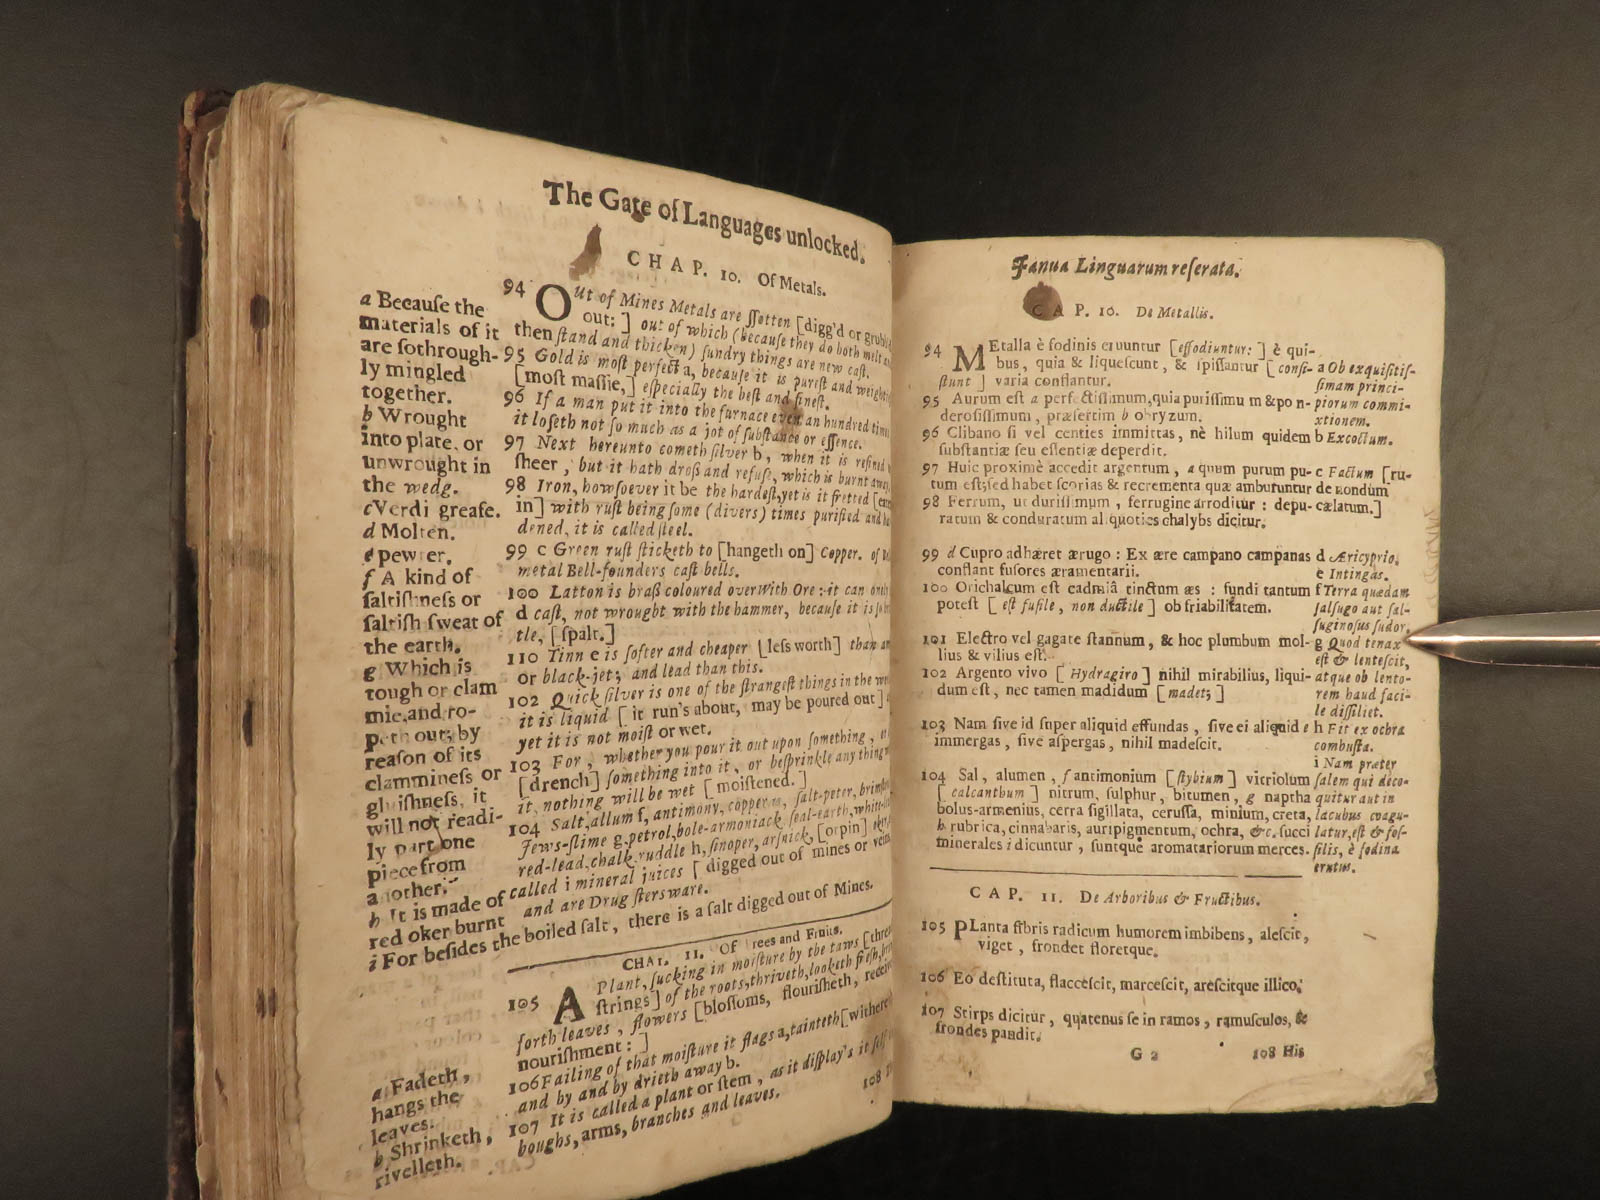 The Gate of Languages unlocked.
CHAP. 10. Of Metals.
a Becauſe the
materials of it
are ſothrough-
ly mingled
together.
b Wrought
into plate, or
unwrought in
the wedg.
cVerdi greaſe.
d Molten.
e pewter.
f A kind of
ſaltiſhneſs or
ſaltiſh ſweat of
the earth.
g Which is
tough or clam
mie, and ro-
peth out; by
reaſon of its
clammineſs or
gluiſhneſs, it
will not readi-
ly part one
piece from
another.
h It is made of
red oker burnt
i For beſides the boiled ſalt, there is a ſalt digged out of Mines.
94 Out of Mines Metals are gotten [digg'd or
out: ] out of which (becauſe they do both melt
then ſtand and thicken) ſundry things are new caſt.
95 Gold is moſt perfect a, becauſe it is pureſt and
[moſt maſſie,] eſpecially the beſt and fineſt.
96 If a man put it into the furnace even an hundred
it loſeth not ſo much as a jot of ſubſtance or eſſence.
97 Next hereunto cometh ſilver b, when it is refined
ſheer, but it hath droſs and refuſe, which is burnt
98 Iron, howſoever it be the hardeſt, yet is it fretted
in] with ruſt being ſome (divers) times purified and
dened, it is called ſteel.
99 c Green ruſt ſticketh to [hangeth on] Copper. of
metal Bell-founders caſt bells.
100 Latton is braſs coloured over With Ore: it can
d caſt, not wrought with the hammer, becauſe it is
tle, [ſpalt.]
110 Tinn e is ſofter and cheaper [leſs worth] than
or black-jet; and lead than this.
102 Quick ſilver is one of the ſtrangeſt things in the
it is liquid [it run's about, may be poured out]
yet it is not moiſt or wet.
103 For, whether you pour it out upon ſomething,
[drench] ſomething into it, or beſprinkle any thing
it, nothing will be wet [moiſtened.]
104 Salt, allum f, antimony, ſalt-peter,
Jews-ſlime g, petrol, bole-armoniack ſeal-earth,
red-lead, chalk, ruddle h, ſinoper, arſnick, [orpin]
called i mineral juices [digged out of mines or
and are Drugſters ware.
CHAP. 11. Of Trees and Fruits.
105 A Plant, ſucking in moiſture by the taws
ſtrings] of the roots, thriveth, looketh freſh,
forth leaves, flowers [bloſſoms, flouriſheth,
nouriſhment: ]
106 Failing of that moiſture it flags a, tainteth
and by and by drieth away b.
107 It is called a plant or ſtem, as it diſplay's it ſelf
boughs, arms, branches and leaves.
108
a Fadeth,
hangs the
leaves.
b Shrinketh,
rivelleth.
Janua Linguarum reſerata.
CAP. 10. De Metallis.
94 MEtalla è fodinis eruuntur [effodiuntur: ] è qui-
bus, quia & liqueſcunt, & ſpiſſantur [conſi-
ſtunt ] varia conflantur.
95 Aurum eſt a perfectiſſimum, quia puriſſimum & pon-
deroſiſſimum, præſertim b obryzum.
96 Clibano ſi vel centies immittas, nè hilum quidem
ſubſtantiæ ſeu eſſentiæ deperdit.
97 Huic proximè accedit argentum, a quum purum pu-
tum eſt; ſed habet ſcorias & recrementa quæ amburuntur
98 Ferrum, ut duriſſimum, ferrugine arroditur: depu-
ratum & conduratum aliquoties chalybs dicitur.
99 d Cupro adhæret ærugo: Ex ære campano campanas
conflant fuſores æramentarii.
100 Orichalcum eſt cadmiâ tinctum æs: fundi tantum
poteſt [eſt fuſile, non ductile] ob friabilitatem.
101 Electro vel gagate ſtannum, & hoc plumbum mol-
lius & vilius eſt.
102 Argento vivo [Hydragiro] nihil mirabilius, liqui-
dum eſt, nec tamen madidum [madet;]
103 Nam ſive id ſuper aliquid effundas, ſive ei aliquid
immergas, ſive aſpergas, nihil madeſcit.
104 Sal, alumen, f antimonium [ſtybium] vitriolum
[calcanthum] nitrum, ſulphur, bitumen, g naptha
bolus-armenius, terra ſigillata, ceruſſa, minium, creta,
h rubrica, cinnabaris, auripigmentum, ochra, &c. ſucci
minerales i dicuntur, ſuntque aromatariorum merces.
a Ob exquiſitiſ-
ſimam princi-
piorum commi-
xtionem.
b Excoctum.
c Factum [ru-
de nondum
cælatum.]
d Æricyprio.
e Intingas.
f Terra quædam
ſalſugo aut ſal-
ſuginoſus ſudor.
g Quod tenax
eſt & lenteſcit,
atque ob lento-
rem haud faci-
le diſſiliet.
h Fit ex ochra
combuſta.
i Nam præter
ſalem qui deco-
quitur aut in
lacubus coagu-
latur, eſt & foſ-
ſilis, è fodina
erutus.
CAP. 11. De Arboribus & Fructibus.
105 PLanta fibris radicum humorem imbibens, aleſcit,
viget, frondet floretque.
106 Eo deſtituta, flacceſcit, marceſcit, areſcitque illico.
107 Stirps dicitur, quatenus ſe in ramos, ramuſculos, &
frondes pandit.
G 2
108 His